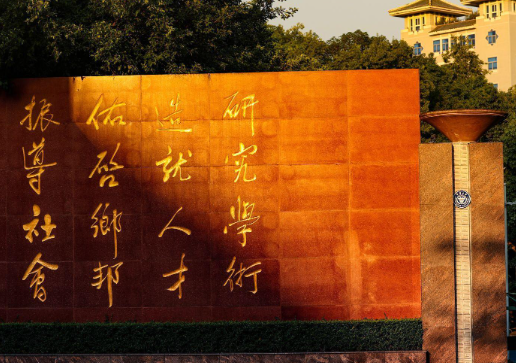 研究學術
造就人才
佑啓鄉邦
振導社會